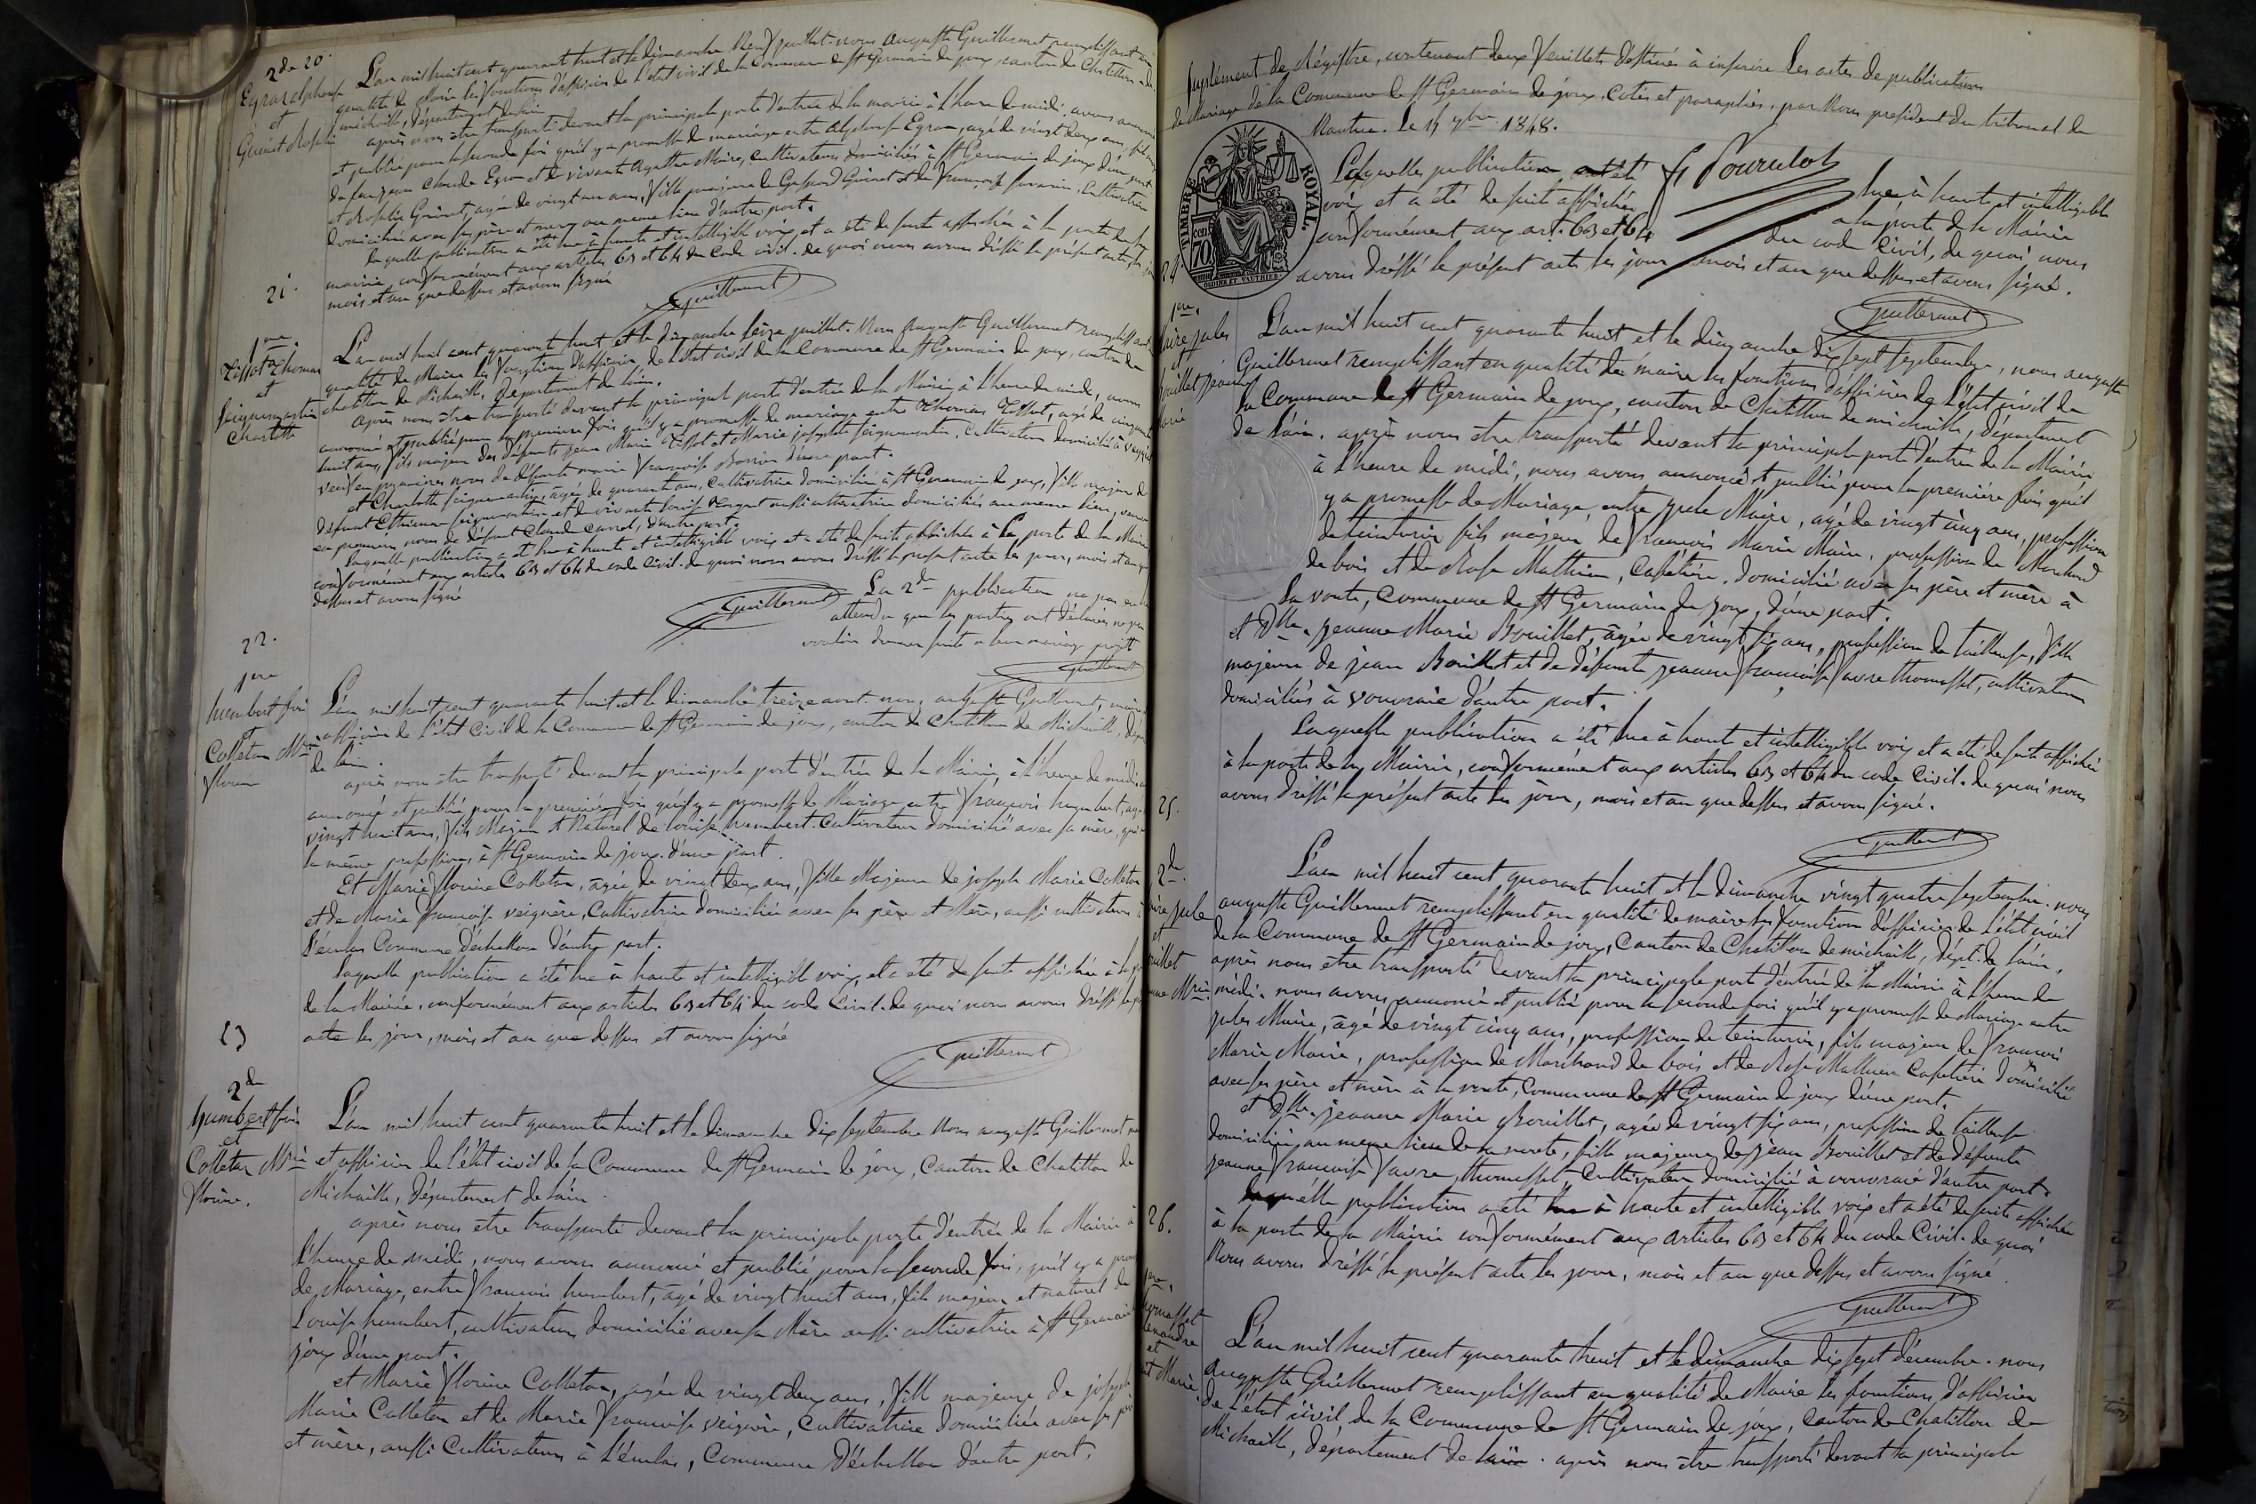 2de 20.
Egraz alphonse
et
Guinet Rosalie
L'an mil huit cent quarante huit et le dimanche neuf juillet. nous auguste Guillermet remplissant en
qualité de Maire les fonctions d'officier de l'état civil de la Commune de St Germain de joux canton de Chatillon de
michaille, département de l'ain
après nous être transporté devant la principale porte d'entrée de la mairie à L'heure de midi. avons annoncé
et publié pour la seconde fois qu'il y a promesse de mariage entre Alphonse Egraz, agé de vingt deux ans, fils
de feu jean Claude Egraz et de vivante Agathe Maire, Cultivateurs domiciliés à St Germain de joux d'une part
et Rosalie Guinet, agée de vingt un ans, fille majeure de Gaspard Guinet et de françoise, cultivateurs
domiciliée avec ses père et mère au même lieu d'autre part.
Laquelle publication a été lue à haute et intelligible voix et a été de suite affichée à la porte de la
mairie conformément aux articles 63 et 64 du Code civil. de quoi nous avons dréssé le présent acte les jour
mois et an que dessus et avons signé
Guillermet
21.
1ere
Tissot Thomas
et
Seignemartin
Charlotte
L'an mil huit cent quarante huit et le dimanche seize juillet. Nous Auguste Guillermet remplissant
qualité de Maire les fonctions d'officier de l'état civil de la Commune de St Germain de joux, canton de
chatillon de Michaille, département de l'ain.
Après nous être transporté devant la principale porte d'entrée de la Mairie, à L'heure de midi, avons
annoncé et publié pour la première fois qu'il y a promesse de mariage entre Thomas Tissot, agé de cinquante
huit ans, fils majeur des défunts jean Marie Tissot et Marie josephte Seignemartin, Cultivateur domicilié à
veuf en premières noces de défunte marie françoise d'une part.
et Charlotte Seignemartin, agée de quarante ans, cultivatrice domiciliée à St Germain de joux, fille majeure de
défunt Etienne Seignemartin et de vivante aussi cultivatrice domiciliée au même lieu, veuve
en premières noces de défunt Claude d'autre part.
Laquelle publication a été lue à haute et intelligible voix et a été de suite affichée à la porte de la Mairie
conformément aux articles 63 et 64 du code Civil. de quoi nous avons dréssé le présent acte les jour, mois et an que
dessus et avons signé
Guillermet
La 2de publication n'a pas eu lieu
attendu que les parties ont déclaré ne pas
vouloir donner suite à leur mariage
Guillermet
22.
1ere
humbert fois
et
Colleton Mrie
florine
L'an mil huit cent quarante huit et le dimanche treize aout. nous, auguste Guillermet, maire
officier de l'état Civil de la Commune de St Germain de joux, canton de chatillon de Michaille,
de l'ain.
après nous être transporté devant la principale porte d'entrée de la Mairie, à L'heure de midi
annoncé et publié pour la première fois qu'il y a promesse de Mariage entre françois humbert,
vingt huit ans, fils Majeur et Naturel de louise humbert. Cultivateur domicilié avec sa mère,
la même profession, à St Germain de joux. d'une part.
Et Marie florine Colleton, agée de vingt deux ans, fille Majeure de joseph Marie Colleton
et de Marie françoise veignère, Cultivatrice domiciliée avec ses père et Mère, aussi cultivateurs à
commune d'échallon d'autre part.
laquelle publication a été lue à haute et intelligible voix, et a été de suite affichée à la
de la Mairie, conformément aux articles 63 et 64 du code Civil. de quoi nous avons dréssé le
acte les jour, mois et an que dessus et avons signé
Guillermet
23
2de
humbert fois
et
Colleton Mrie
florine.
L'an mil huit cent quarante huit et le dimanche dix septembre Nous auguste Guillermet
et officier de l'état civil de la Commune de St Germain de joux, Canton de Chatillon de
Michaille, département de l'ain.
après nous être transporté devant la principale porte d'entrée de la Mairie à
l'heure de midi, nous avons annoncé et publié pour la seconde fois, qu'il y a
de Mariage, entre francois humbert, agé de vingt huit ans, fils majeur et naturel de
Louise humbert, cultivateur domicilié avec sa Mère aussi cultivatrice à St Germain
joux d'une part.
et Marie florine Colleton, agée de vingt deux ans, fille majeure de joseph
Marie Colleton et de Marie francoise veignère, Cultivatrice domiciliée avec ses
et mère, aussi Cultivateurs à, Commune d'échallon d'autre part.
Suplément de Régistre, contenant deux feuillets destinés à inscrire les actes de publications
de Mariage de la Commune de St Germain de joux. Cotés et paraphés. par Nous président du tribunal de
Nantua. Le 14 7bre 1848.
TIMBRE ROYAL
70
Laquelle publication a été lue à haute et intelligible
voix et a été de suite affichée a la porte de la Mairie
conformément aux art. 63 et 64 du code Civil, de quoi nous
avons dréssé le présent acte les jour mois et an que dessus et avons signé.
Guillermet
24
1ere.
Maire jules
et
Bouillet jeanne
Marie
L'an mil huit cent quarante huit et le dimanche dix sept septembre, nous auguste
Guillermet remplissant en qualité de maire les fonctions d'officier de l'état civil de
la Commune de St Germain de joux, canton de Chatillon de michaille, département
de l'ain. après nous être transporté devant la principale porte d'entrée de la Mairie,
à l'heure de midi, nous avons annoncé et publié pour la première fois qu'il
y a promesse de Mariage, entre jules Maire, agé de vingt cinq ans, profession
de teinturier fils majeur de francois Marie Maire, profession de Marchand
de bois et de Rose Mathieu, Cafetière. domicilié avec ses père et mère à
la voute, Commune de St Germain de joux, d'une part.
et Dlle. jeanne Marie Bouillet, agée de vingt six ans, profession de tailleuse, fille
majeure de jean Bouillet et de défunte jeanne françoise favre thomasset, cultivateur
domiciliés à vouvraie d'autre part.
Laquelle publication a été lue à haute et intelligible voix et a été de suite affichée
à la porte de la Mairie, conformément aux articles 63 et 64 du code Civil. de quoi nous
avons dréssé le présent acte les jour, mois et an que dessus et avons signé.
Guillermet
25.
2de.
L'an mil huit cent quarante huit et le dimanche vingt quatre septembre. nous
auguste Guillermet remplissant en qualité de maire les fonctions d'officier de l'état civil
de la Commune de St Germain de joux, Canton de Chatillon de michaille, dépt. de l'ain.
après nous être transporté devant la principale porte d'entrée de la Mairie à L'heure de
midi. nous avons annoncé et publié pour la seconde fois qu'il y a promesse de Mariage entre
jules Maire, agé de vingt cinq ans, profession de teinturier, fils majeur de francois
Marie Maire, profession de Marchand de bois et de Rose Mathieu Cafetière domicilié
avec ses père et mère à la voute, commune de St Germain de joux d'une part.
et Dlle. jeanne Marie Bouillet, agée de vingt six ans, profession de tailleuse
domiciliée au même lieu de la voute, fille majeure de jean Bouillet et de défunte
jeanne francoise favre, thomasset, Cultivateur domicilié à vouvraie d'autre part.
laquelle publication a été lue à haute et intelligible voix et a été de suite affichée
à la porte de la Mairie conformément aux articles 63 et 64 du code Civil. de quoi
Nous avons dréssé le présent acte les jour, mois et an que dessus et avons signé.
Guillermet
26.
L'an mil huit cent quarante huit et le dimanche dix sept décembre. nous
Auguste Guillermet remplissant en qualité de Maire les fonctions d'officier
de l'état civil de la Commune de St Germain de joux, canton de Chatillon de
Michaille, département de l'ain. après nous être transporté devant la principale